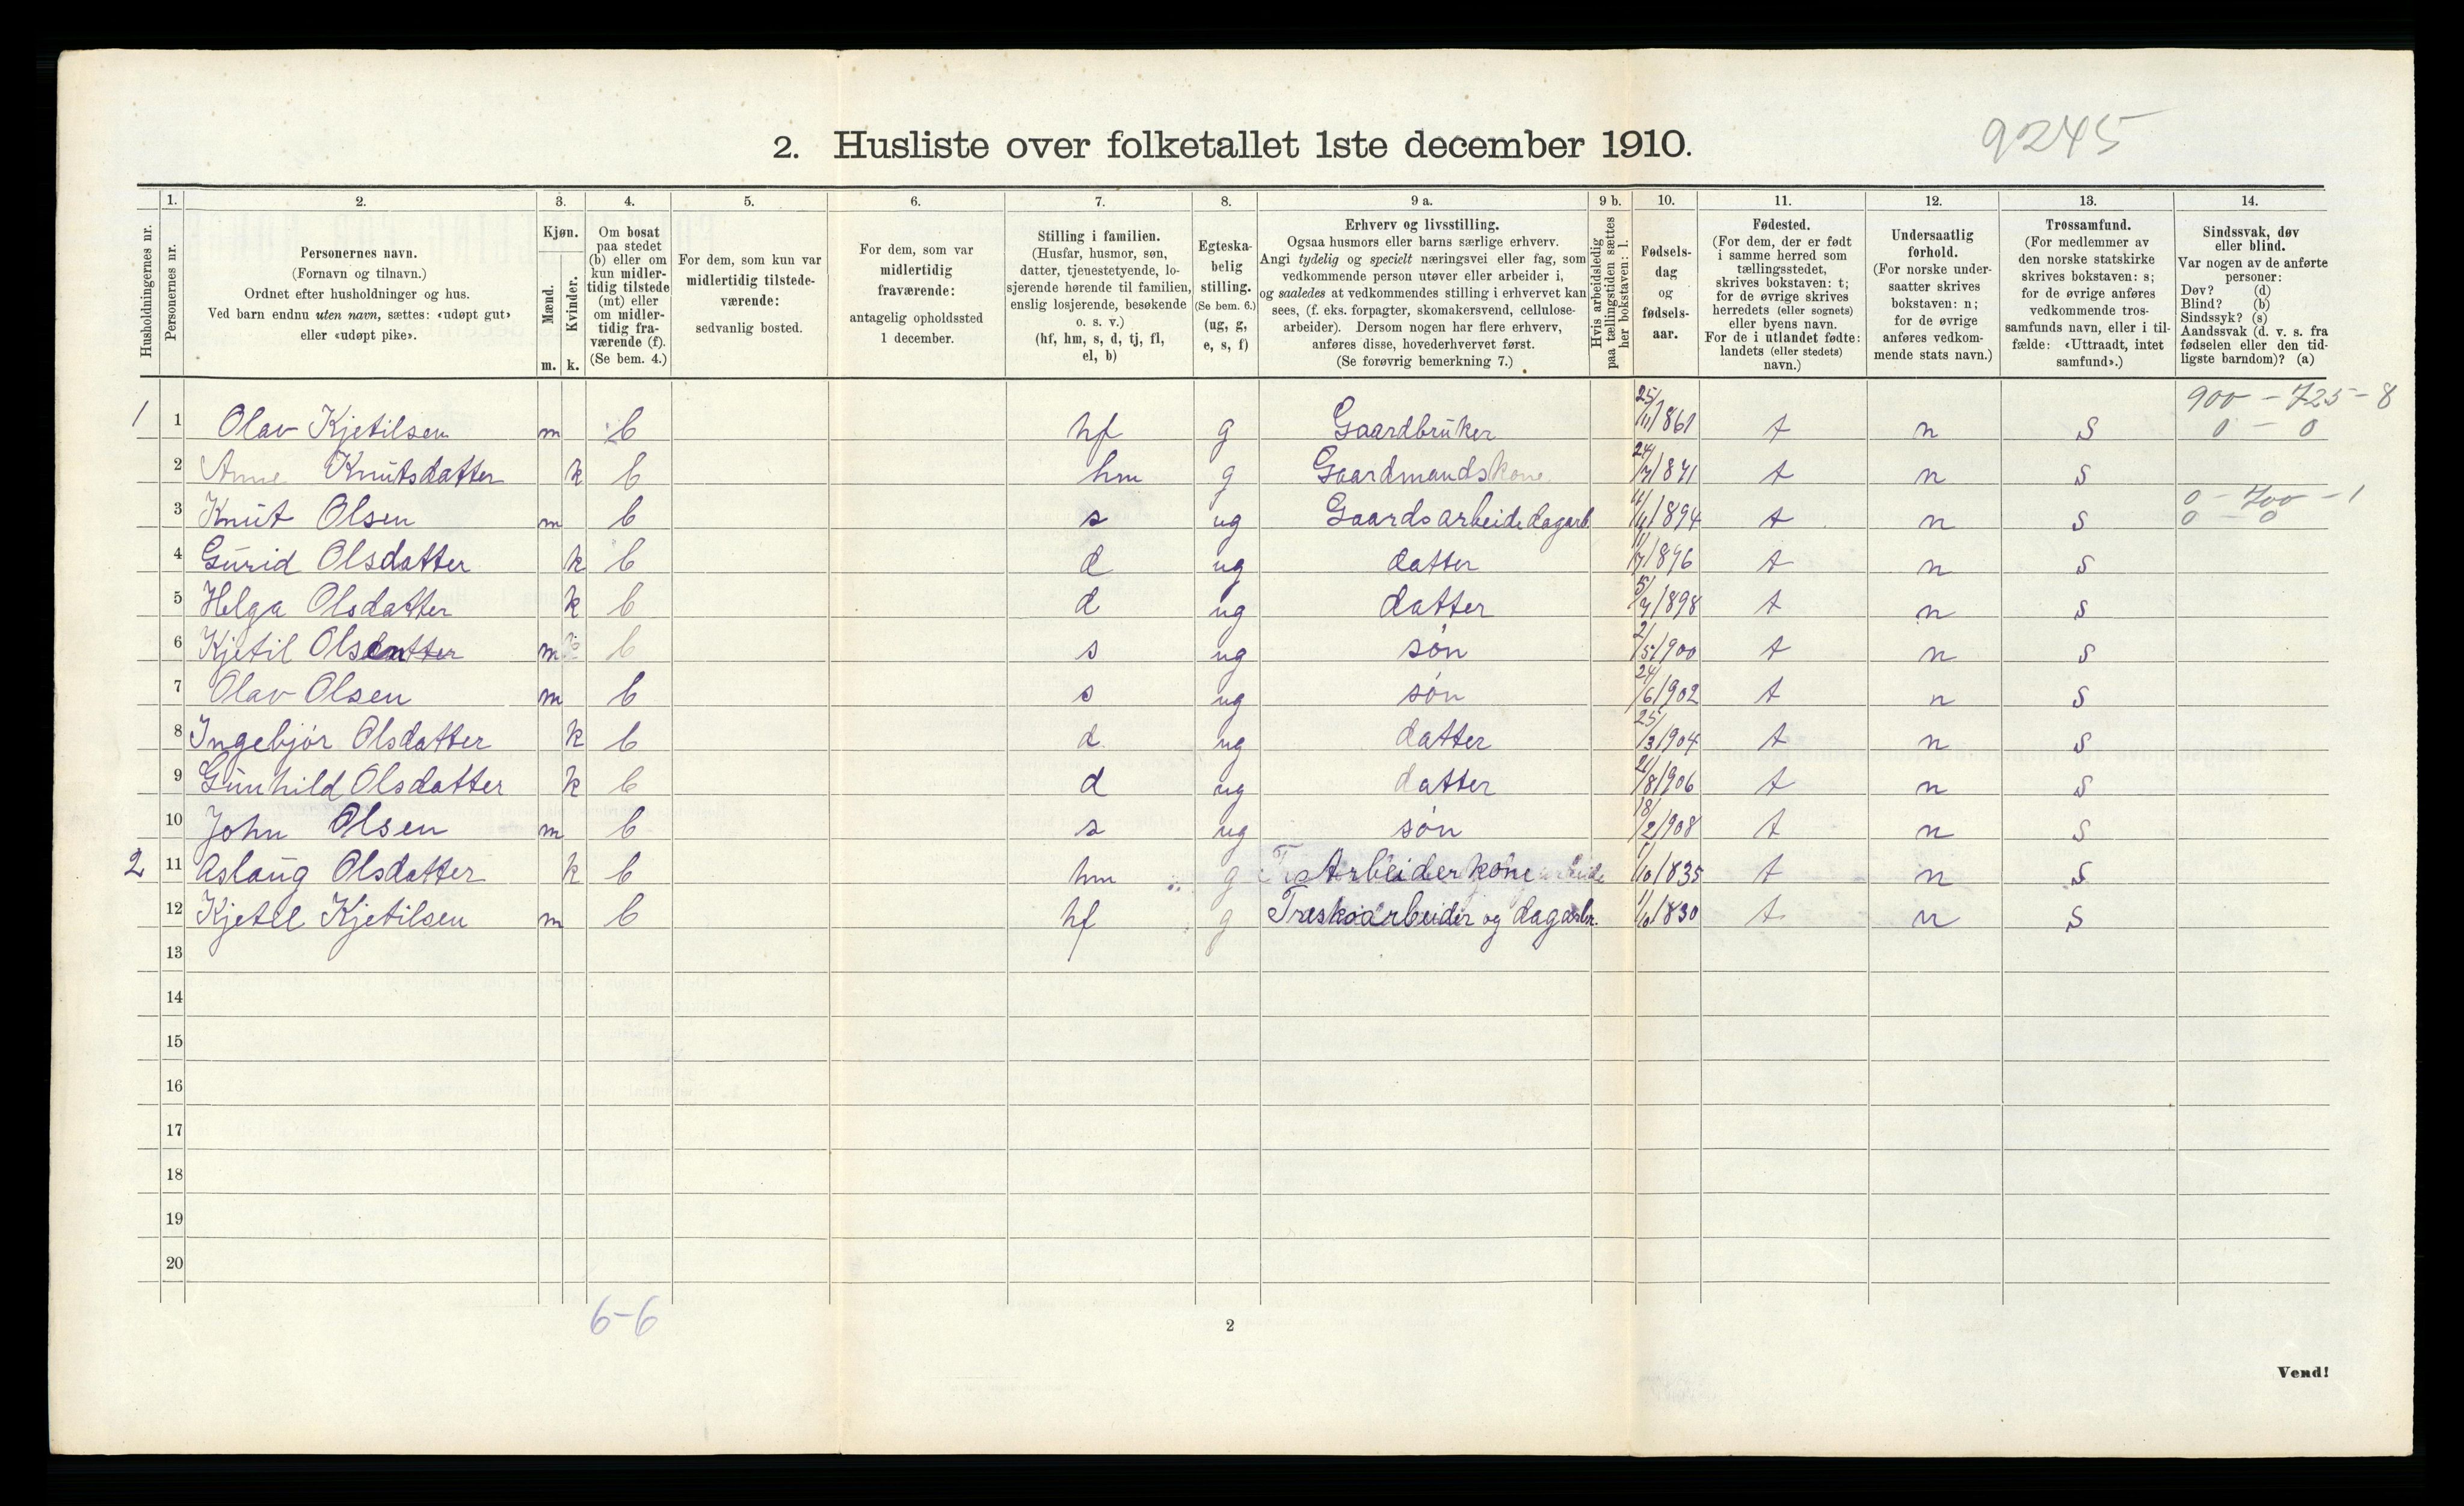 9245
2. Husliste over folketallet 1ste december 1910.
Husholdningernes nr.
1.
Personernes nr.
2.
Personernes navn.
(Fornavn og tilnavn.)
Ordnet efter husholdninger og hus.
Ved barn endnu uten navn, sættes: «udøpt gut»
eller «udøpt pike».
3.
Kjøn.
Mænd.
m.
Kvinder.
k.
4.
Om bosat
paa stedet
(b) eller om
kun midler-
tidig tilstede
(mt) eller
om midler-
tidig fra-
værende (f).
(Se bem. 4.)
5.
For dem, som kun var
midlertidig tilstede-
værende:
sedvanlig bosted.
6.
For dem, som var
midlertidig
fraværende:
antagelig opholdssted
1 december.
7.
Stilling i familien.
(Husfar, husmor, søn,
datter, tjenestetyende, lo-
sjerende hørende til familien,
enslig losjerende, besøkende
o. s. v.)
(hf, hm, s, d, tj, fl,
el, b)
8.
Egteska-
belig
stilling.
(Se bem. 6.)
(ug, g,
e, s, f)
9 a.
Erhverv og livsstilling.
Ogsaa husmors eller barns særlige erhverv.
Angi tydelig og specielt næringsvei eller fag, som
vedkommende person utøver eller arbeider i,
og saaledes at vedkommendes stilling i erhvervet kan
sees, (f. eks. forpagter, skomakersvend, cellulose-
arbeider). Dersom nogen har flere erhverv,
anføres disse, hovederhvervet først.
(Se forøvrig bemerkning 7.)
9 b.
Hvis arbeidsledig
paa tællingstiden sættes
her bokstaven: l.
10.
Fødsels-
dag
og
fødsels-
aar.
11.
Fødested.
(For dem, der er født
i samme herred som
tællingsstedet,
skrives bokstaven: t;
for de øvrige skrives
herredets (eller sognets)
eller byens navn.
For de i utlandet fødte:
landets (eller stedets)
navn.)
12.
Undersaatlig
forhold.
(For norske under-
saatter skrives
bokstaven: n;
for de øvrige
anføres vedkom-
mende stats navn.)
13.
Trossamfund.
(For medlemmer av
den norske statskirke
skrives bokstaven: s;
for de øvrige anføres
vedkommende tros-
samfunds navn, eller i til-
fælde: «Uttraadt, intet
samfund».)
14.
Sindssvak, døv
eller blind.
Var nogen av de anførte
personer:
Døv? (d)
Blind? (b)
Sindssyk? (s)
Aandssvak (d. v. s. fra
fødselen eller den tid-
ligste barndom)? (a)
900 - 725 - 8
1 1 Olav Kjetilsen m b hf g Gaardbruker 25/11 1861 t n s 0 - 0
2 Anne Knutsdatter k b hm g Gaardmandskone 24/7 1871 t n s
0 - 700 - 1
3 Knut Olsen m b s ug Gaardsarbeide dagarb. 1894 t n s 0 - 0
4 Gurid Olsdatter k b d ug datter 11/7 1896 t n s
5 Helga Olsdatter k b d ug datter 5/7 1898 t n s
6 Kjetil Olsen m b s ug søn 2/5 1900 t n s
7 Olav Olsen m b s ug søn 24/6 1902 t n s
8 Ingebjør Olsdatter k b d ug datter 25/3 1904 t n s
9 Gunhild Olsdatter k b d ug datter 21/8 1906 t n s
10 John Olsen m b s ug søn 18/2 1908 t n s
2 11 Aslaug Olsdatter k b hm g Arbeiderkone 1/10 1835 t n s
12 Kjetil Kjetilsen m b hf g Træskoarbeider og dagarbr. 1/10 1830 t n s
13
14
15
16
17
18
19
20
6-6
2
Vend!